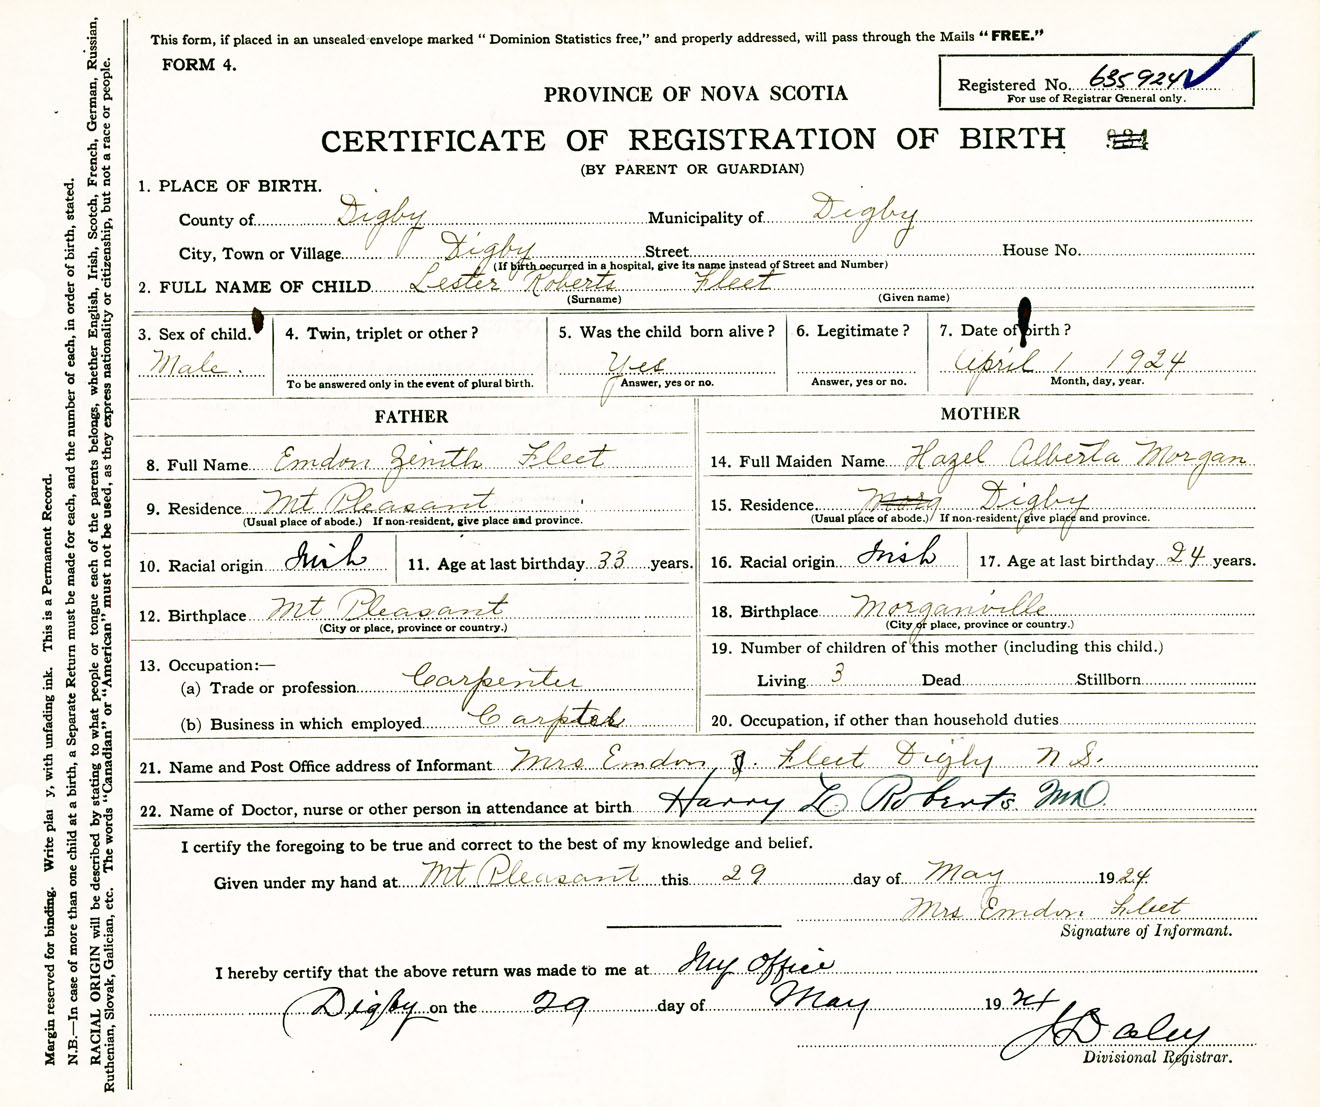 This form, if placed in an unsealed envelope marked “ Dominion Statistics free,” and properly addressed, will pass through the Mails “ FREE.”
FORM 4.
Registered No. 635924
For use of Registrar General only.
PROVINCE OF NOVA SCOTIA
CERTIFICATE OF REGISTRATION OF BIRTH
(BY PARENT OR GUARDIAN)
1. PLACE OF BIRTH.
County of Digby Municipality of Digby
City, Town or Village Digby Street House No.
(If birth occurred in a hospital, give its name instead of Street and Number)
2. FULL NAME OF CHILD Lester Roberts Fleet
(Surname) (Given name)
3. Sex of child. 4. Twin, triplet or other ? 5. Was the child born alive ? 6. Legitimate ? 7. Date of birth ?
Male. Yes April 1 1924
To be answered only in the event of plural birth. Answer, yes or no. Answer, yes or no. Month, day, year.
FATHER
8. Full Name Emdon Zenith Fleet
9. Residence Mt Pleasant
(Usual place of abode.) If non-resident, give place and province.
10. Racial origin Irish 11. Age at last birthday 33 years.
12. Birthplace Mt Pleasant
(City or place, province or country.)
13. Occupation:—
(a) Trade or profession Carpenter
(b) Business in which employed
MOTHER
14. Full Maiden Name Hazel Alberta Morgan
15. Residence Digby
(Usual place of abode.) If non-resident, give place and province.
16. Racial origin Irish 17. Age at last birthday 24 years.
18. Birthplace Morganville
(City or place, province or country.)
19. Number of children of this mother (including this child.)
Living 3 Dead Stillborn
20. Occupation, if other than household duties
21. Name and Post Office address of Informant Mrs Emdon Z. Fleet Digby N S.
22. Name of Doctor, nurse or other person in attendance at birth Harry L Roberts MD.
I certify the foregoing to be true and correct to the best of my knowledge and belief.
Given under my hand at Mt Pleasant this 29 day of May 1924.
Mrs Emdon Fleet
Signature of Informant.
I hereby certify that the above return was made to me at My office
Digby on the 29 day of May 1924
J Daley
Divisional Registrar.
Margin reserved for binding. Write plai y, with unfading ink. This is a Permanent Record.
N.B.—In case of more than one child at a birth, a Separate Return must be made for each, and the number of each, in order of birth, stated.
RACIAL ORIGIN will be described by stating to what people or tongue each of the parents belongs, whether English, Irish, Scotch, French, German, Russian,
Ruthenian, Slovak, Galician, etc. The words “Canadian” or “American” must not be used, as they express nationality or citizenship, but not a race or people.